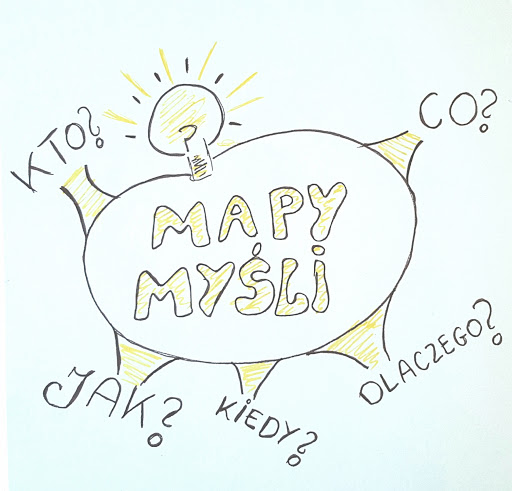 KTO?
CO?
MAPY
MYŚLI
JAK?
KIEDY?
DLACZEGO?